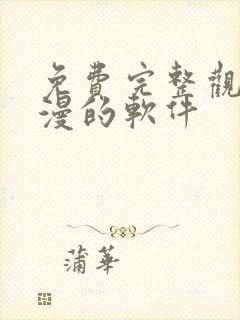 免費完整觀
漫的軟件
蒲華